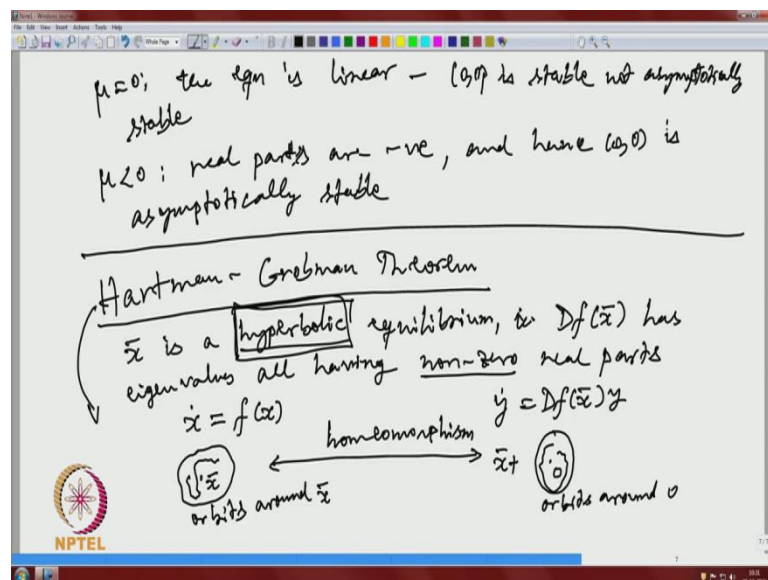 Note1 - Windows Journal
File Edit View Insert Actions Tools Help
μ=0; the eqn is linear – (0,0) is stable not asymptotically
stable
μ<0: real parts are -ve, and hence (0,0) is
asymptotically stable
Hartman - Grobman Theorem
x̄ is a hyperbolic equilibrium, ie Df(x̄) has
eigenvalues all having non-zero real parts
ẋ = f(x) ẏ = Df(x̄)y
homeomorphism
x̄ x̄+ 0
orbits around x̄ orbits around 0
NPTEL
7/7
7